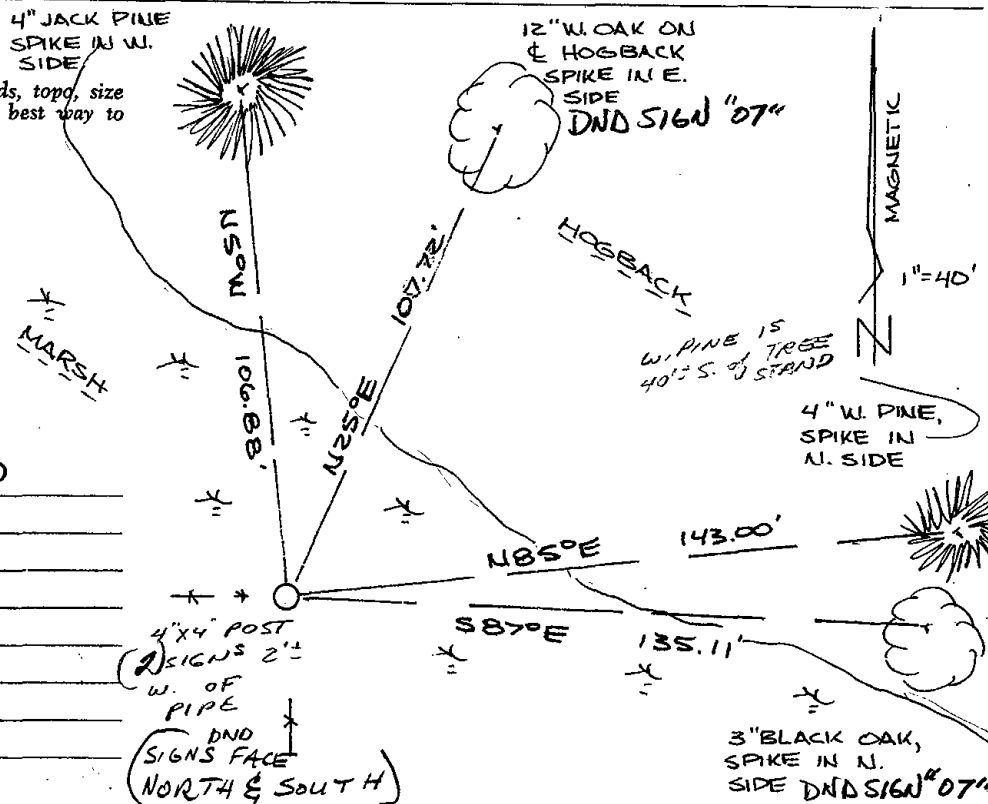 4" JACK PINE
SPIKE IN W.
SIDE
ds, topo, size
best way to
12" W. OAK ON
℄ HOGBACK
SPIKE IN E.
SIDE
DND SIGN "07"
MAGNETIC
1"=40'
N
HOGBACK
W. PINE IS
40'± S. of TREE
STAND
4" W. PINE,
SPIKE IN
N. SIDE
MARSH
N5°W 106.88'
N25°E 107.72'
N85°E 143.00'
S87°E 135.11'
4"X4" POST
(2) SIGNS 2'±
W. OF
PIPE
DND
(SIGNS FACE
NORTH & SOUTH)
3" BLACK OAK,
SPIKE IN N.
SIDE DND SIGN "07"